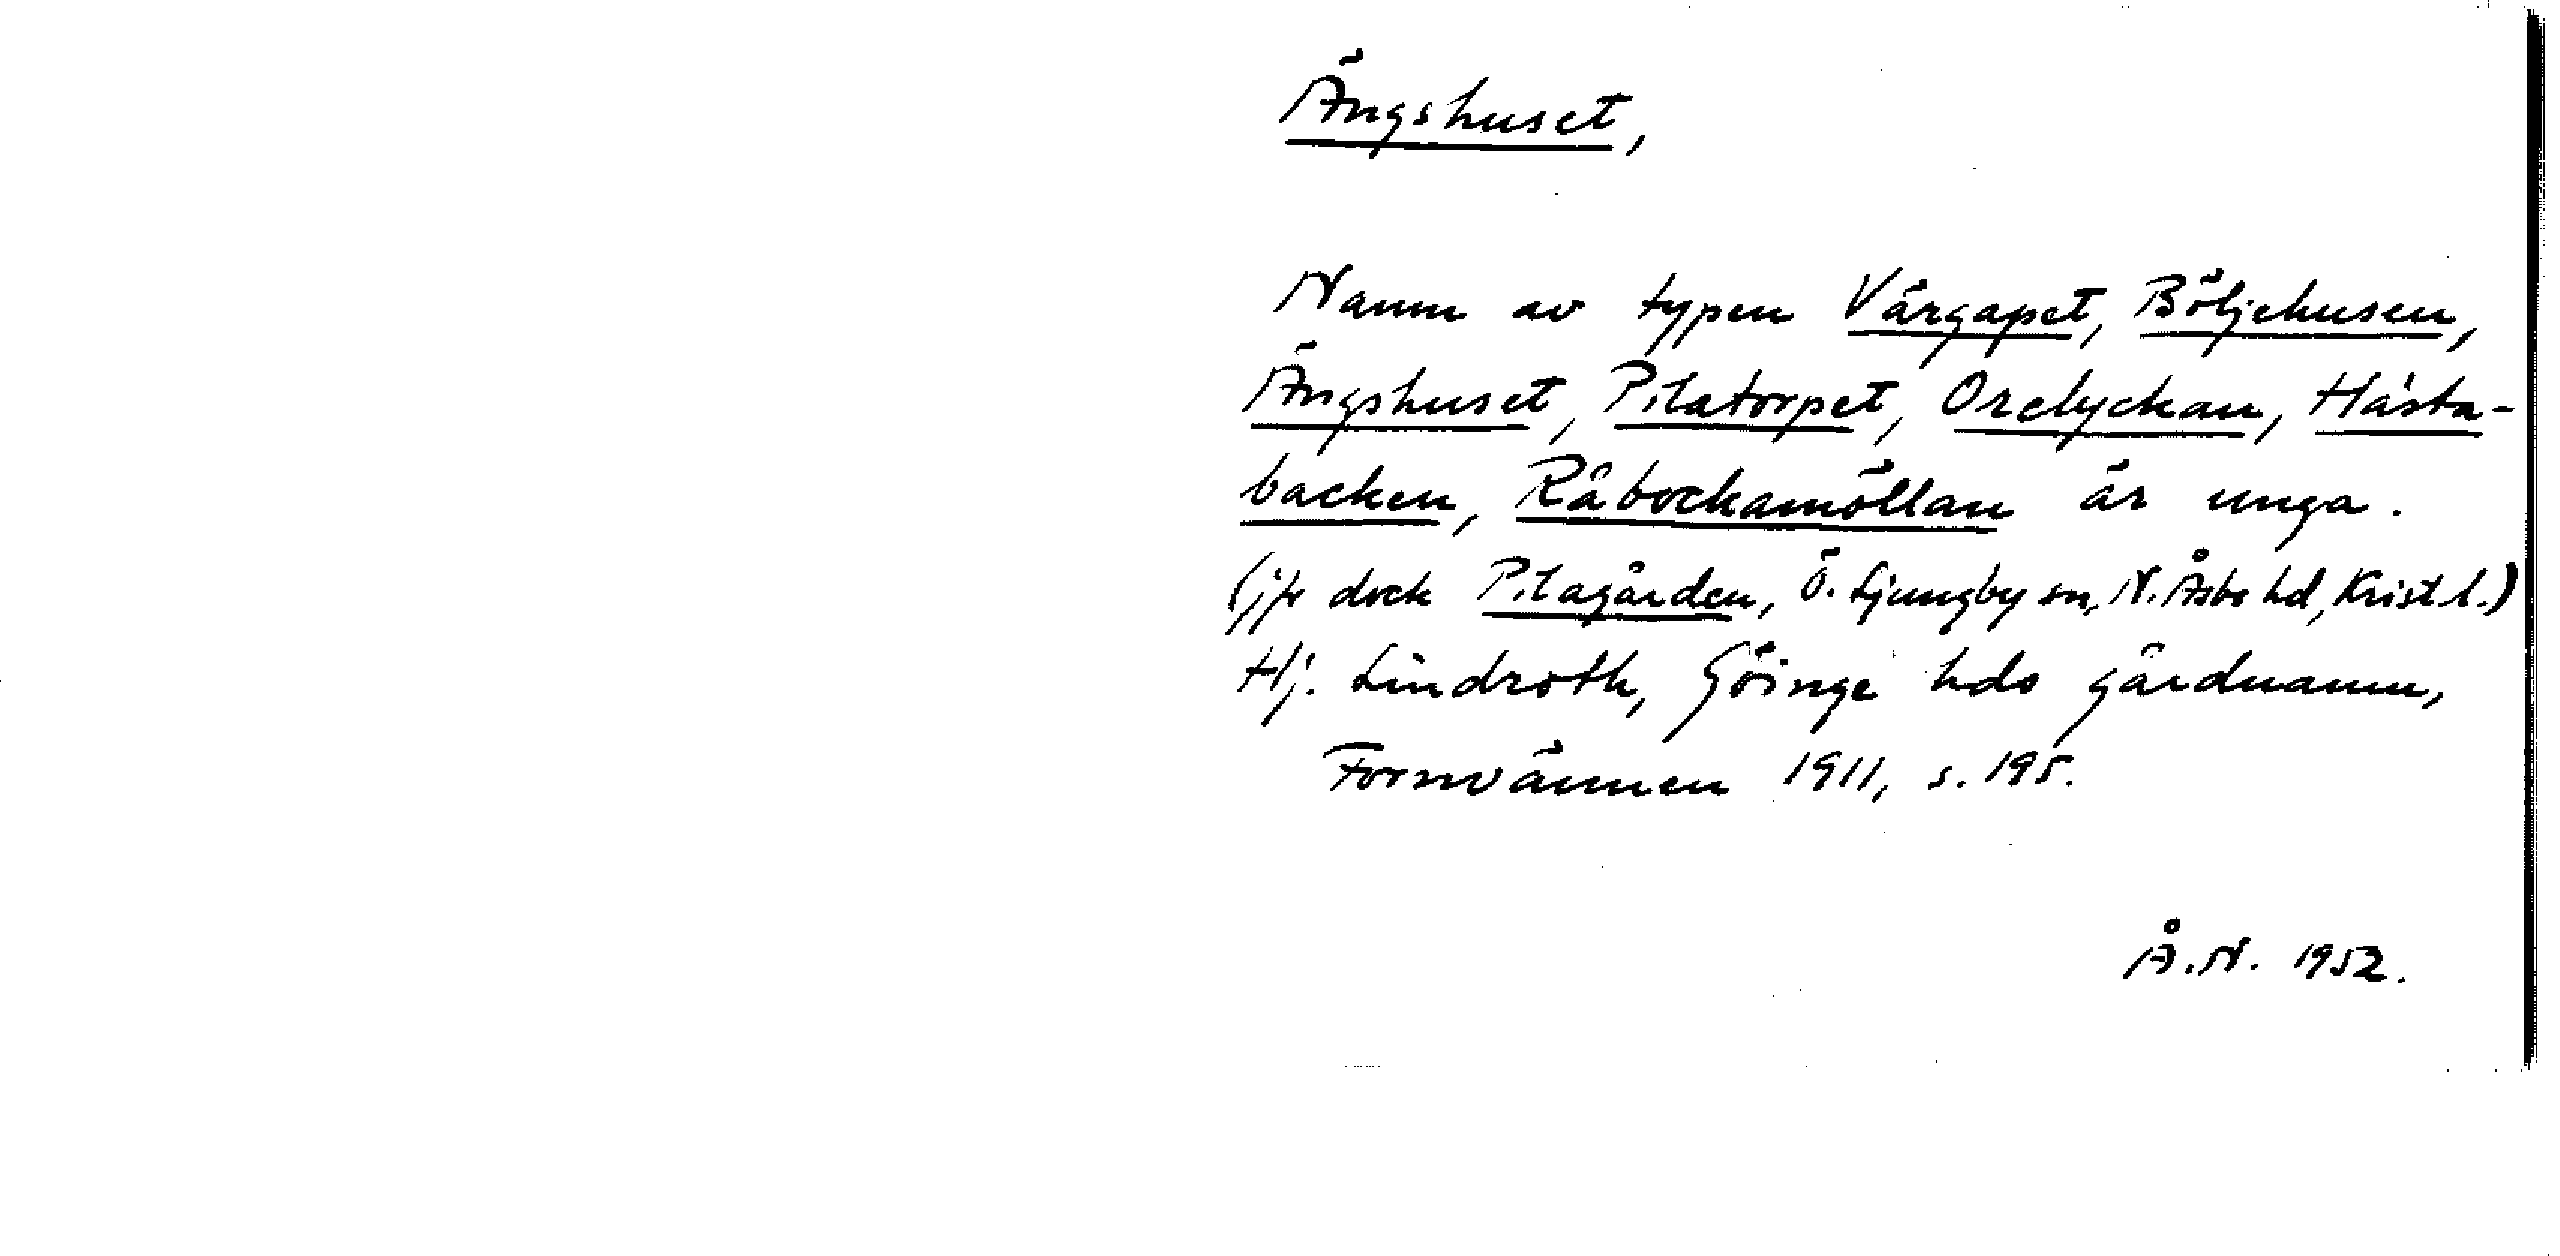 Ängshuset,
Namn av typen Värgapet, Böljehusen,
Ängshuset, Pilatorpet, Orelyckan, Hästa-
backen, Råbockamöllan är unga.
(jfr dock Pilagården, Ö. Ljungby sn, N. Åsbo hd, Krist. l.)
Hj. Lindroth, Göinge hds gårdnamn,
Fornvännen 1911, s. 195.
Å.N. 1952.